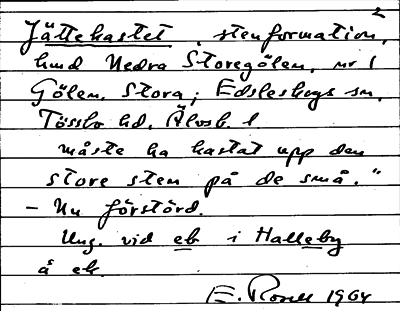 2
Jättekastet, stenformation,
hmd Nedra Storegölen, nr 1
Gölen, Stora; Edsleskogs sn,
Tössbo hd, Älvsb. l
måste ha kastat upp den
store sten på de små."
- Nu förstörd.
Ung. vid eb i Halleby
å ek.
E. Rosell 1964